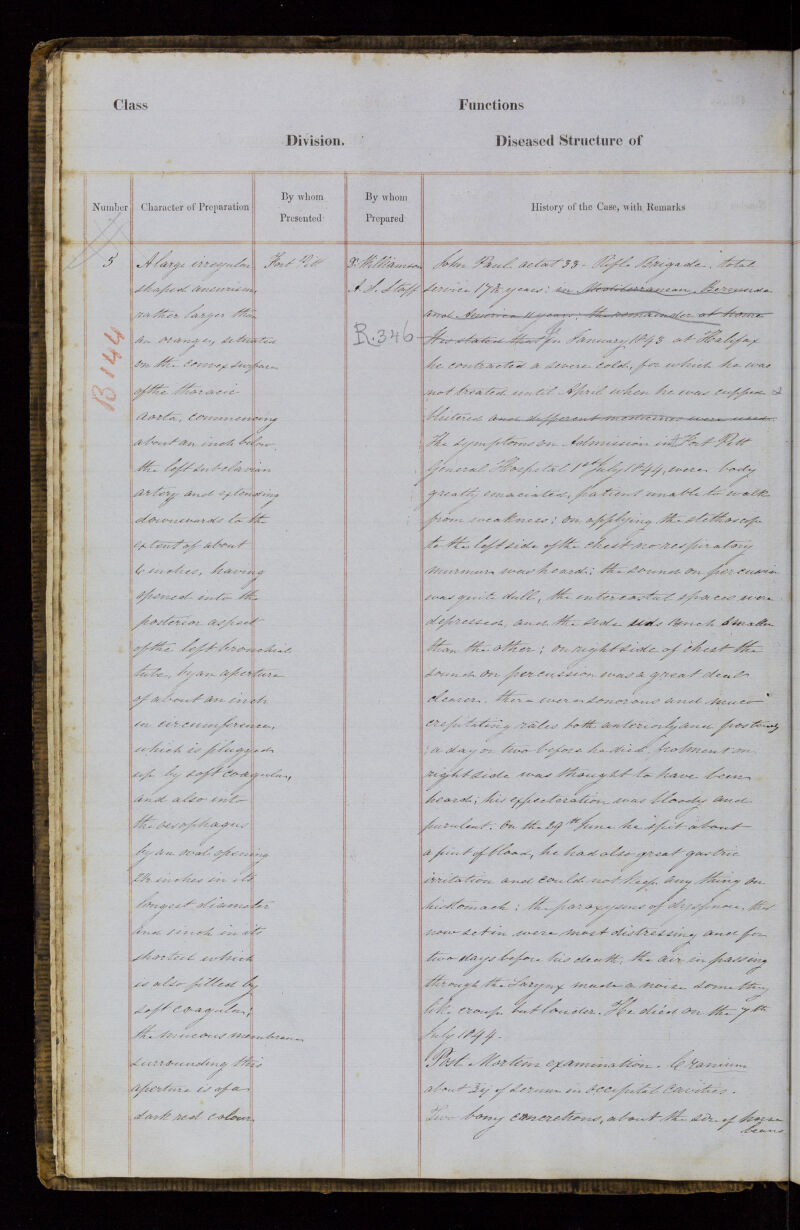 Class
Functions
Division.
Diseased Structure of
Number
Character of Preparation
By whom
Presented
By whom
Prepared
History of the Case, with Remarks
5
B 144
A large irregular
shaped aneurism,
rather larger than
an orange, situated
on the convex surface
of the thoracic
aorta, commencing
about an inch below
the left subclavian
artery and extending
downwards to the
extent of about
6 inches, having
opened into the
posterior aspect
of the left bronchial
tube, by an aperture
of about an inch
in circumference,
which is plugged
up by soft coagulum,
and also into
the oesophagus
by an oval opening
2½ inches in its
longest diameter
and 1 inch in its
shortest which
is also filled by
soft coagulum;
the mucous membrane
surrounding this
aperture is of a
dark red colour.
Fort Pitt
Dr. Williamson
A. S. Staff
R.346
John Paul. aetat 33 - Rifle Brigade. total
service 17⅞ years: in Mediterranean, Bermuda
and America 11 years; the remainder at home
He stated that In January 1843 at Halifax
he contracted a severe cold, for which he was
not treated until April when he was cupped &
blistered and different medicines were used.
The symptoms on Admission into Fort Pitt
General Hospital 1st July 1844, were body
greatly emaciated, patient unable to walk
from weakness; on applying the stethoscope
to the left side of the chest no respiratory
murmur was heard; the sound on percussion
was quite dull, the intercostal spaces were
depressed, and the side was much smaller
than the other; on right side of chest the
sound on percussion was a great deal
clearer. there were sonorous and muco
crepitating râles both anteriorly and posteriorly
a day or two before he died, on
right side was thought to have been
heard; his expectoration was bloody and
purulent. On the 29th June he spit about
a pint of blood, he had also great gastric
irritation and could not keep any thing on
his stomach; the paroxysms of dyspnoea, that
now set in were most distressing and for
two days before his death, the air in passing
through the Larynx made a noise something
like croup but louder. He died on the 7th
July 1844.
Post Mortem examination. Cranium
about ʒij of serum in occipital cavities.
Two bony concretions, about the size of horse
beans